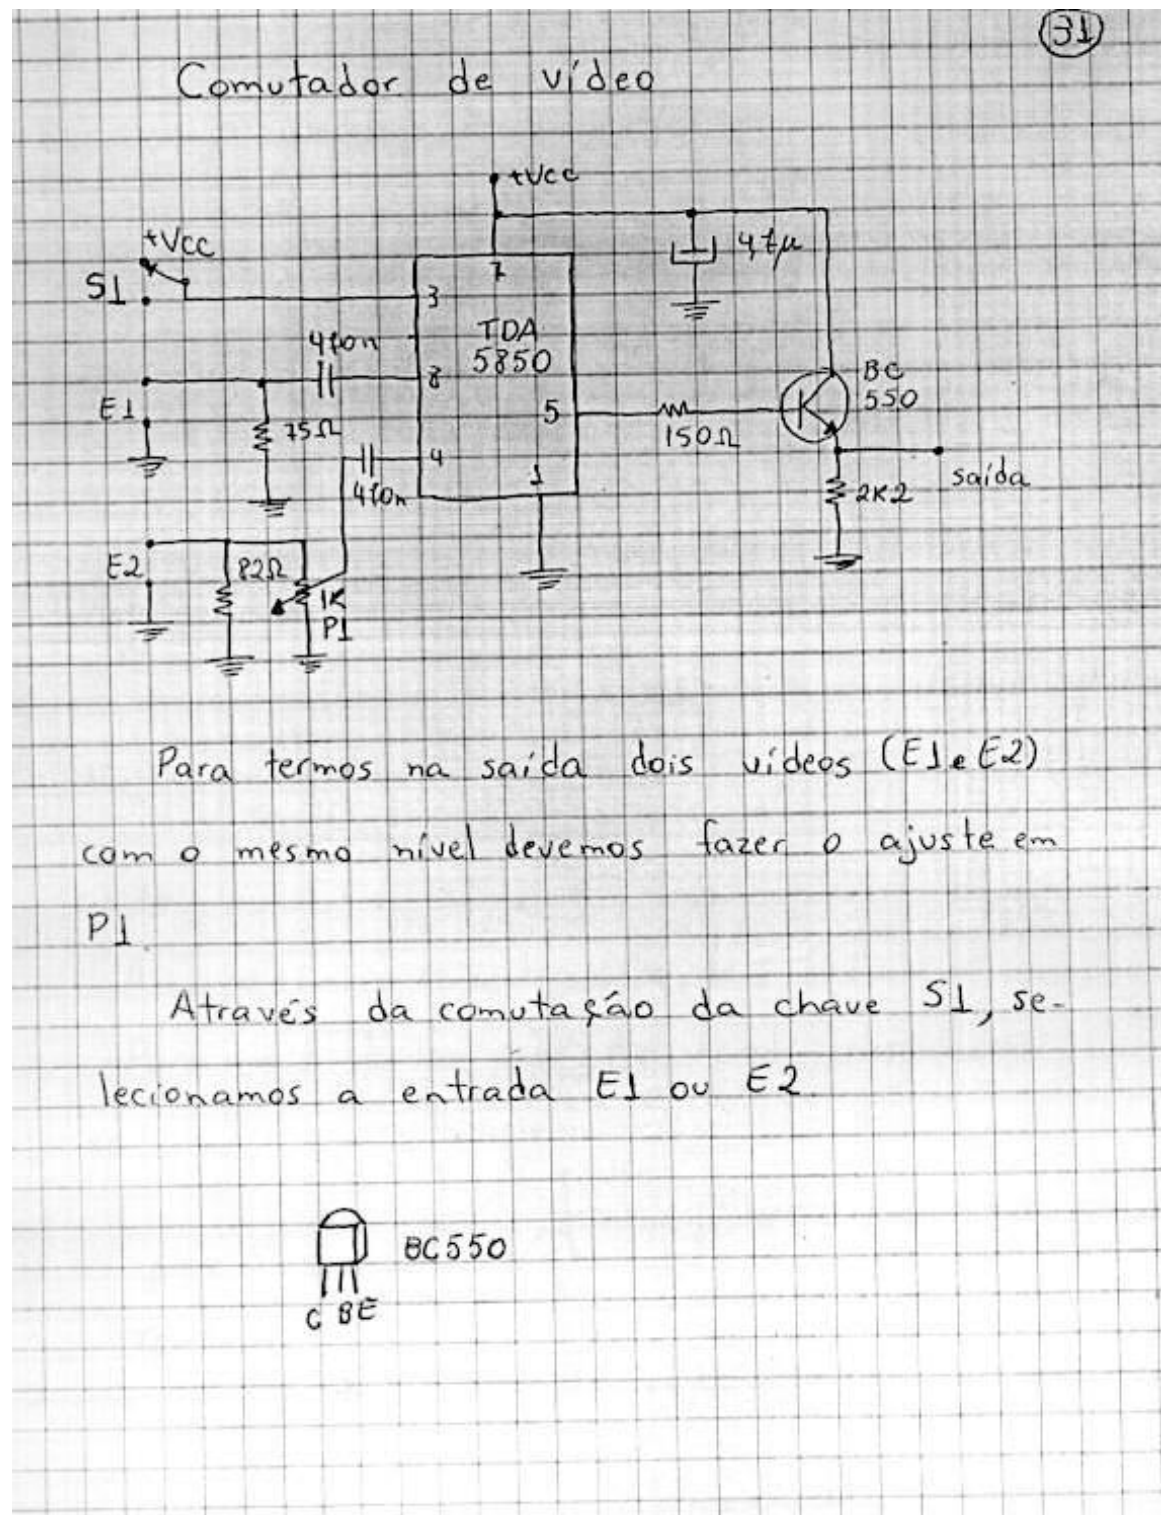 31
Comutador de vídeo
+Vcc
+Vcc
S1
3
7
4,7µ
TDA
5850
470n
8
BC
550
E1
75Ω
5
150Ω
4
470n
1
saída
2K2
E2
82Ω
1K
P1
Para termos na saída dois vídeos (E1 e E2)
com o mesmo nível devemos fazer o ajuste em
P1.
Através da comutação da chave S1, se-
lecionamos a entrada E1 ou E2.
BC550
C B E